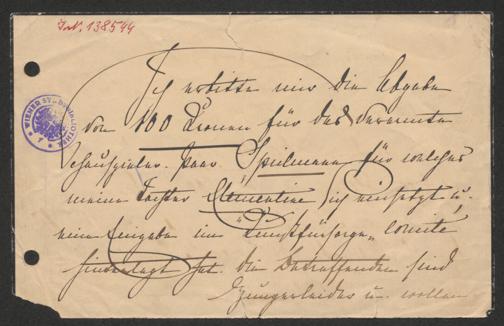 I.N. 138544
WIENER STADTBIBLIOTHEK
Ich erbitte mir die Abgabe
von 100 Kronen für das verarmte
Schauspieler-Paar Spielmann für welches
meine Tochter Clementine sich einsetzt u.
eine Eingabe im "Kunstfürsorge" Comité
hinterlegt hat. Die Betreffenden sind
Hungerleider u. wollen